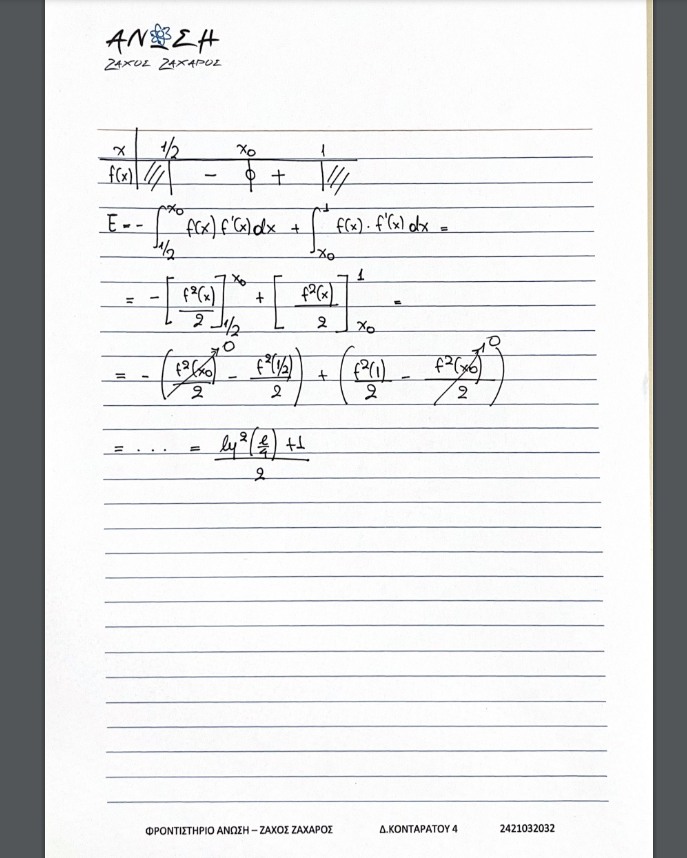 ΑΝΩΣΗ
ΖΑΧΟΣ ΖΑΧΑΡΟΣ
x 1/2 x₀ 1
f(x) /// - 0 + ///
E = - ∫_{1/2}^{x₀} f(x) f'(x) dx + ∫_{x₀}^{1} f(x) · f'(x) dx =
= - [f²(x)/2]_{1/2}^{x₀} + [f²(x)/2]_{x₀}^{1} =
= - (f²(x₀)/2 → 0 - f²(1/2)/2) + (f²(1)/2 - f²(x₀)/2 → 0)
= . . . = (ln²(e/4) + 1)/2
ΦΡΟΝΤΙΣΤΗΡΙΟ ΑΝΩΣΗ – ΖΑΧΟΣ ΖΑΧΑΡΟΣ Δ.ΚΟΝΤΑΡΑΤΟΥ 4 2421032032